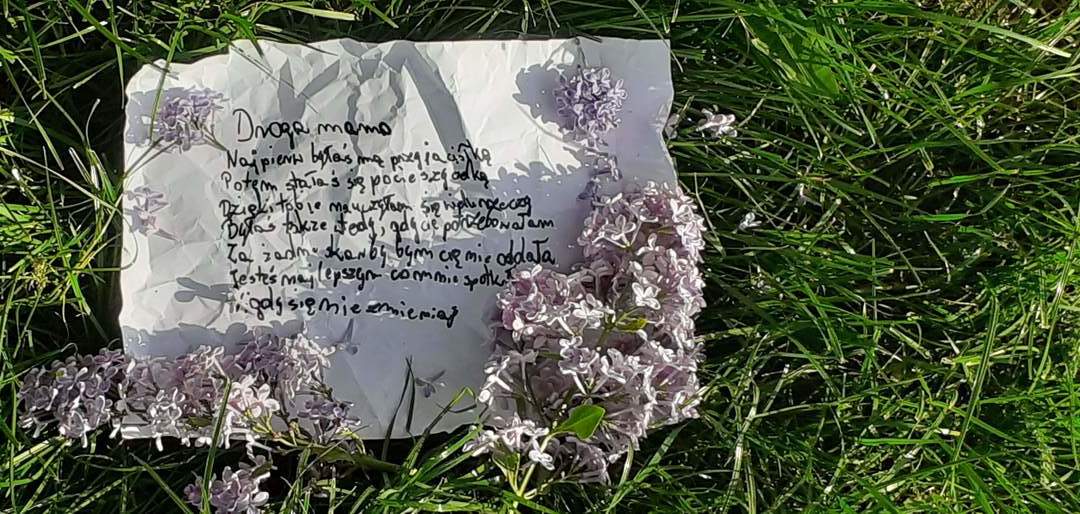 Droga mamo
Najpierw byłaś mą przyjaciółką
Potem stałaś się pocieszycielką
Dzięki tobie nauczyłam się wielu rzeczy
Byłaś także wtedy, gdy cię potrzebowałam
Za żadne skarby bym cię nie oddała
Jesteś najlepszym co mnie spotkało
nigdy się nie zmieniaj